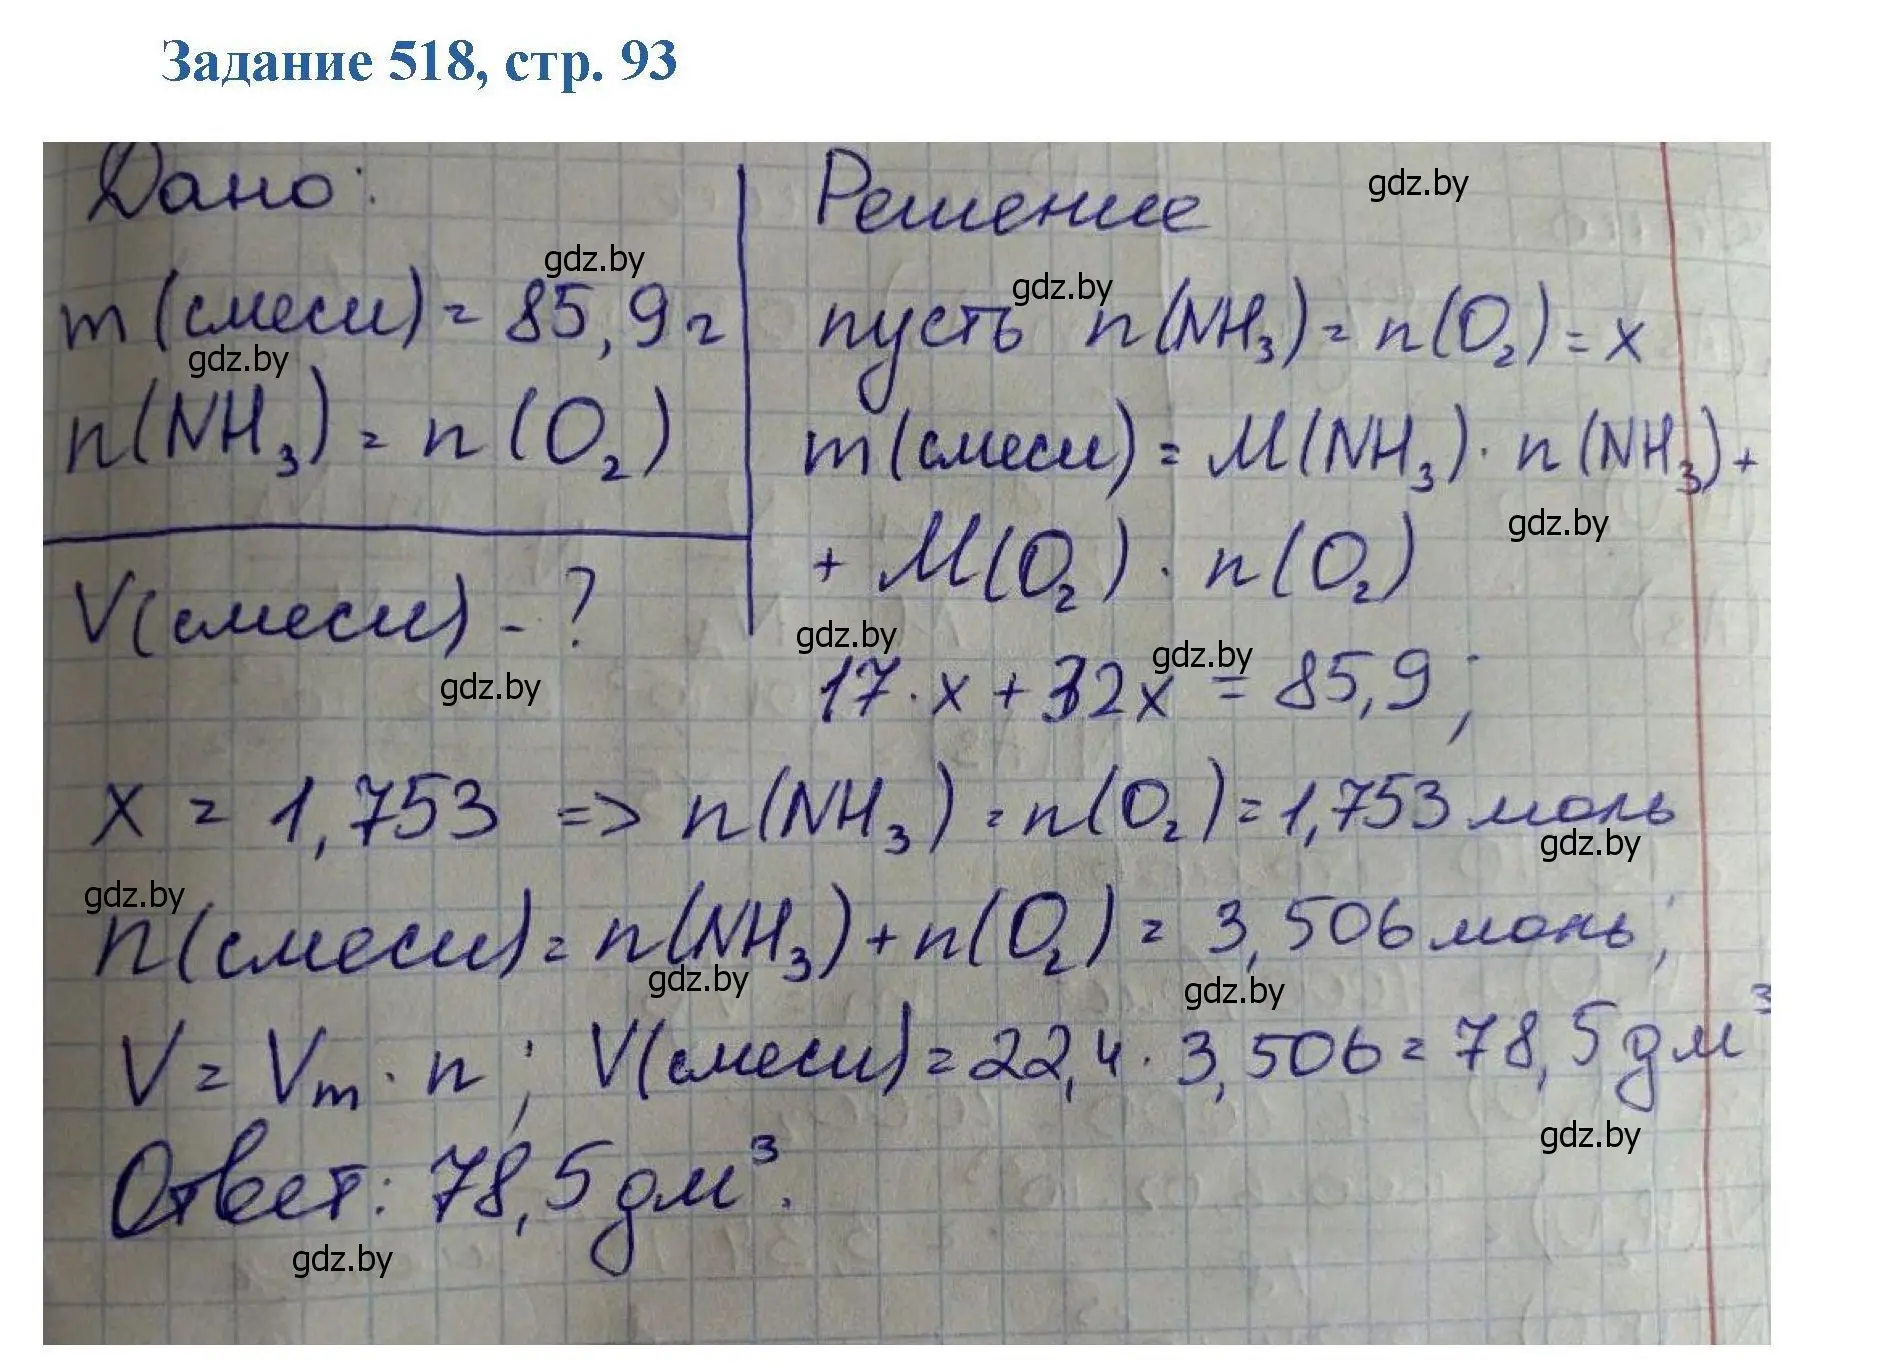 Задание 518, стр. 93
Дано:
m (смеси) = 85,9 г
n(NH₃) = n(O₂)
V(смеси) - ?
Решение
пусть n(NH₃) = n(O₂) = x
m (смеси) = M(NH₃) · n(NH₃) +
+ M(O₂) · n(O₂)
17 · x + 32x = 85,9;
x = 1,753 => n(NH₃) = n(O₂) = 1,753 моль
n(смеси) = n(NH₃) + n(O₂) = 3,506 моль;
V = Vm · n; V(смеси) = 22,4 · 3,506 = 78,5 дм³
Ответ: 78,5 дм³.
gdz.by
gdz.by
gdz.by
gdz.by
gdz.by
gdz.by
gdz.by
gdz.by
gdz.by
gdz.by
gdz.by
gdz.by
gdz.by
gdz.by